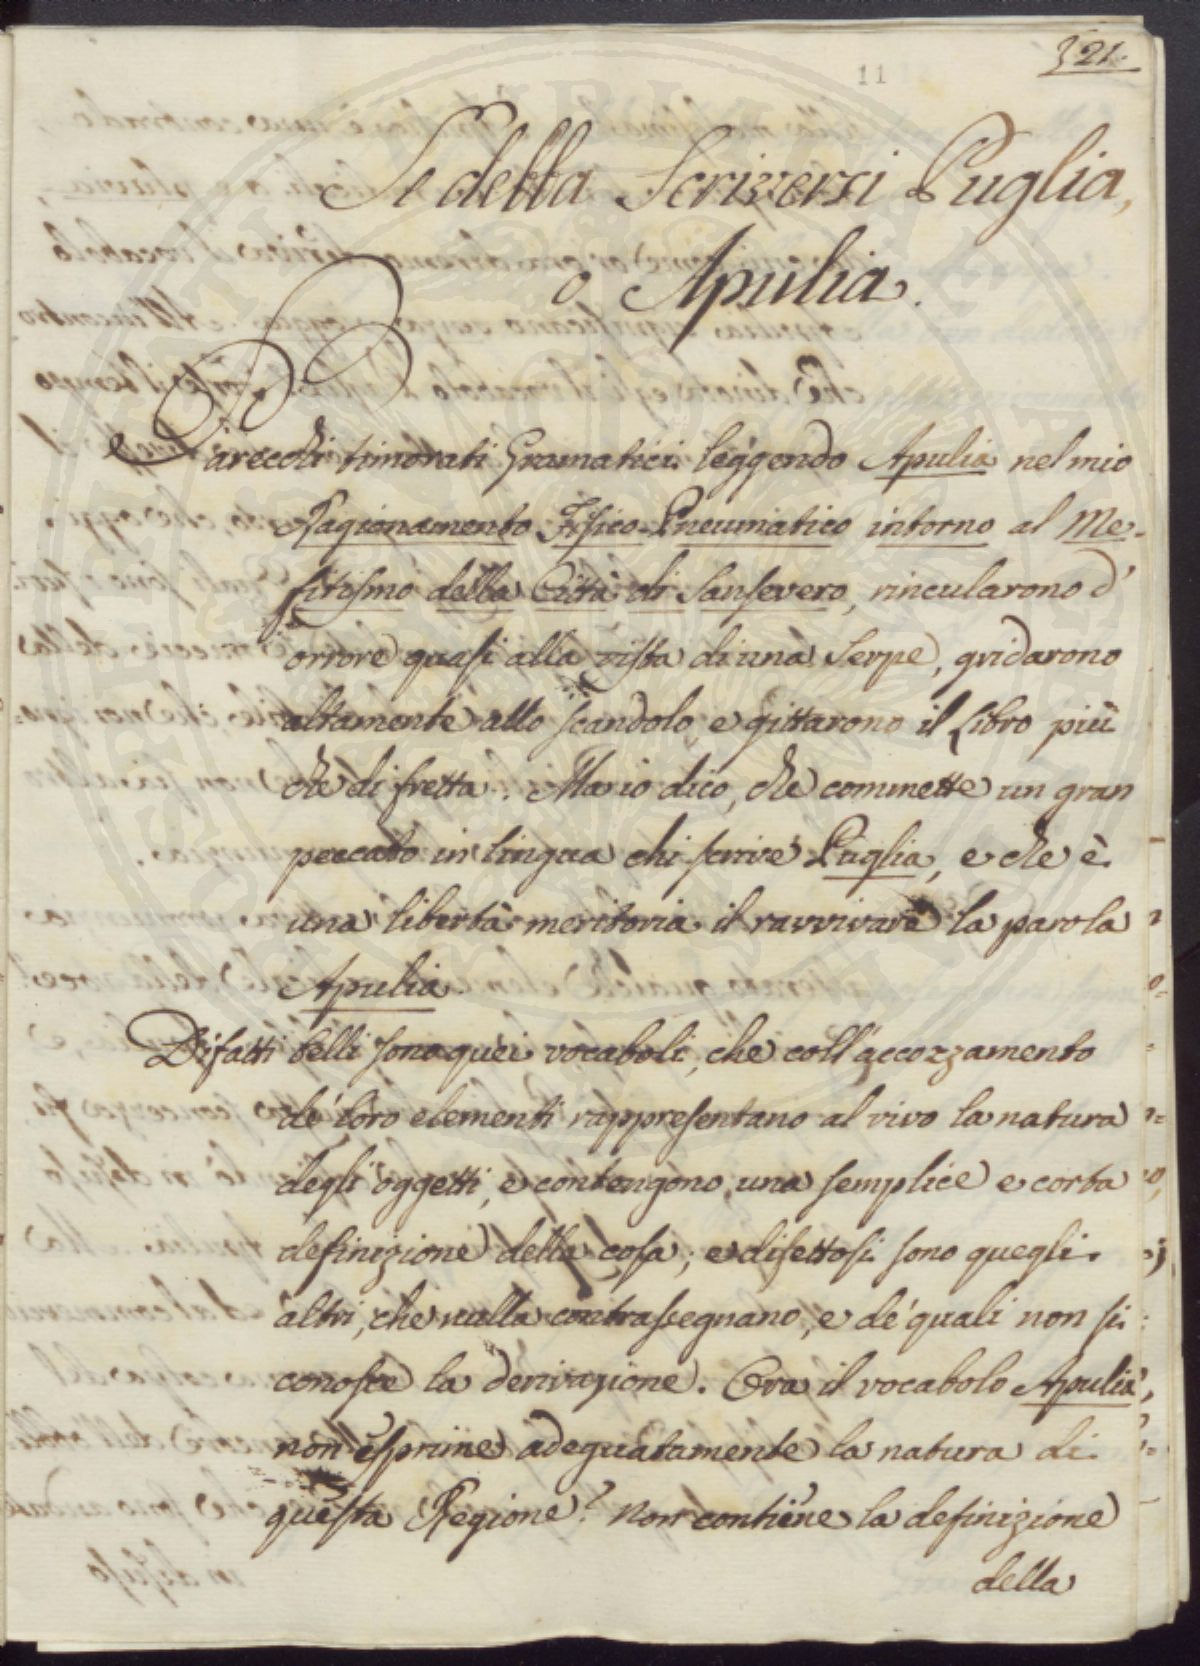 11
321.
Se debba Scriversi Puglia,
o Apulia.
Parecchi timorati Gramatici leggendo Apulia nel mio
Ragionamento Fisico-Pneumatico intorno al Me-
fitismo della Città di Sansevero, rincularono d'
orrore quasi alla vista di una Serpe, gridarono
altamente allo scandolo, e gittarono il Libro più
che di fretta. Ma io dico, che commette un gran
peccato in lingua chi scrive Puglia, e che è
una libertà meritoria il ravvivare la parola
Apulia.
Difatti belli sono quei vocaboli, che coll'accozzamento
de' loro elementi rappresentano al vivo la natura
degli oggetti, e contengono una semplice e corta
definizione della cosa; e difettosi sono quegli
altri, che nulla contrassegnano, e de' quali non si
conosce la derivazione. Ora il vocabolo Apulia,
non esprime adeguatamente la natura di
questa Regione? Non contiene la definizione
della